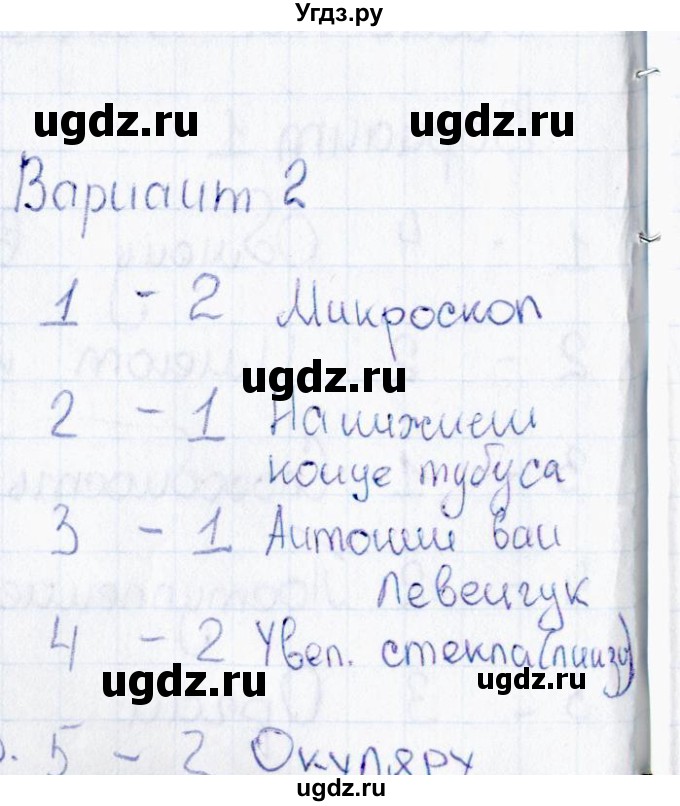 Угдз.ру
ugdz.ru ugdz.ru
Вариант 2
1 - 2 Микроскоп
ugdz.ru
2 - 1 На нижнем
конце тубуса
3 - 1 Антони ван
ugdz.ru
Левенгук
4 - 2 Увел. стекла (линзу)
ugdz.ru ugdz.ru
5 - 2 Окуляру
ugdz.ru